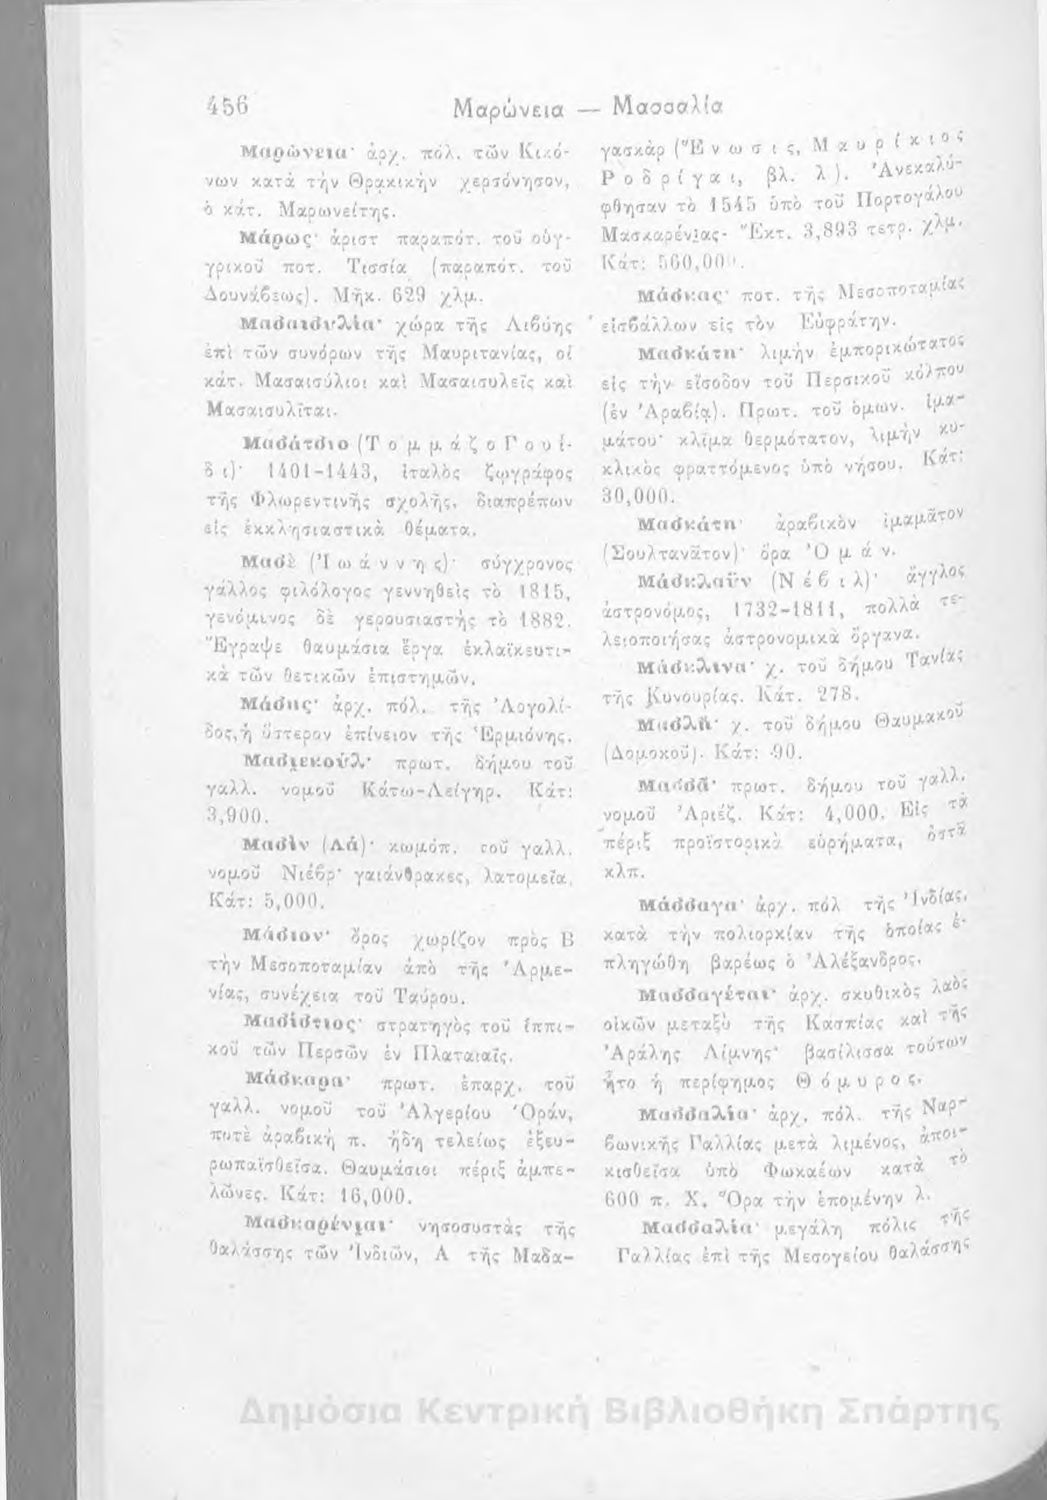 456
Μαρώνεια — Μασσαλία
Μαρώνεια· ἀρχ. πόλ. τῶν Κικό-
νων κατὰ τὴν Θρᾳκικὴν χερσόνησον,
ὁ κάτ. Μαρωνείτης.
Μάρως· ἀριστ παραπότ. τοῦ οὑγ-
γρικοῦ ποτ. Τισσία (παραπότ. τοῦ
Δουνάβεως). Μῆκ. 629 χλμ.
Μασαισυλία· χώρα τῆς Λιβύης
ἐπὶ τῶν συνόρων τῆς Μαυριτανίας, οἱ
κάτ. Μασαισύλιοι καὶ Μασαισυλεῖς καὶ
Μασαισυλῖται.
Μασάτσιο (Τομμάζο Γουί-
δι)· 1401-1443, ἰταλὸς ζωγράφος
τῆς Φλωρεντινῆς σχολῆς, διαπρέπων
εἰς ἐκκλησιαστικὰ θέματα.
Μασὲ (Ἰωάννης)· σύγχρονος
γάλλος φιλόλογος γεννηθεὶς τὸ 1815,
γενόμενος δὲ γερουσιαστὴς τὸ 1882.
Ἔγραψε θαυμάσια ἔργα ἐκλαϊκευτι-
κὰ τῶν θετικῶν ἐπιστημῶν.
Μάσης· ἀρχ. πόλ. τῆς Ἀργολί-
δος, ἡ ὕστερον ἐπίνειον τῆς Ἑρμιόνης.
Μασιεκούλ· πρωτ. δήμου τοῦ
γαλλ. νομοῦ Κάτω-Λείγηρ. Κάτ:
3,900.
Μασὶν (Λὰ)· κωμόπ. τοῦ γαλλ.
νομοῦ Νιέβρ· γαιάνθρακες, λατομεῖα,
Κάτ: 5,000.
Μάσιον· ὄρος χωρίζον πρὸς Β
τὴν Μεσοποταμίαν ἀπὸ τῆς Ἀρμε-
νίας, συνέχεια τοῦ Ταύρου.
Μασίστιος· στρατηγὸς τοῦ ἱππι-
κοῦ τῶν Περσῶν ἐν Πλαταιαῖς.
Μάσκαρα· πρωτ. ἐπαρχ. τοῦ
γαλλ. νομοῦ τοῦ Ἀλγερίου Ὁράν,
ποτὲ ἀραβικὴ π. ἤδη τελείως ἐξευ-
ρωπαϊσθεῖσα. Θαυμάσιοι πέριξ ἀμπε-
λῶνες. Κάτ: 16,000.
Μασκαρένιαι· νησοσυστὰς τῆς
θαλάσσης τῶν Ἰνδιῶν, Α τῆς Μαδα-
γασκὰρ (Ἕνωσις, Μαυρίκιος
Ροδρίγαι, βλ. λ). Ἀνεκαλύ-
φθησαν τὸ 1545 ὑπὸ τοῦ Πορτογάλου
Μασκαρένιας· Ἔκτ. 3,893 τετρ. χλμ.
Κάτ: 560,000.
Μάσκας· ποτ. τῆς Μεσοποταμίας
εἰσβάλλων εἰς τὸν Εὐφράτην.
Μασκάτη· λιμὴν ἐμπορικώτατος
εἰς τὴν εἴσοδον τοῦ Περσικοῦ κόλπου
(ἐν Ἀραβίᾳ). Πρωτ. τοῦ ὁμων. ἰμα-
μάτου· κλῖμα θερμότατον, λιμὴν κυ-
κλικὸς φραττόμενος ὑπὸ νήσου. Κάτ:
30,000.
Μασκάτη· ἀραβικὸν ἰμαμᾶτον
(Σουλτανᾶτον)· ὅρα Ὀμάν.
Μάσκλαϋν (Νέβιλ)· ἄγγλος
ἀστρονόμος, 1732-1811, πολλὰ τε-
λειοποιήσας ἀστρονομικὰ ὄργανα.
Μάσκλινα· χ. τοῦ δήμου Τανίας
τῆς Κυνουρίας. Κάτ. 278.
Μασλῆ· χ. τοῦ δήμου Θαυμακοῦ
(Δομοκοῦ). Κάτ: 90.
Μασσᾶ· πρωτ. δήμου τοῦ γαλλ.
νομοῦ Ἀριέζ. Κάτ: 4,000. Εἰς τὰ
πέριξ προϊστορικὰ εὑρήματα, ὀστᾶ
κλπ.
Μάσσαγα· ἀρχ. πόλ τῆς Ἰνδίας,
κατὰ τὴν πολιορκίαν τῆς ὁποίας ἐ-
πληγώθη βαρέως ὁ Ἀλέξανδρος.
Μασσαγέται· ἀρχ. σκυθικὸς λαὸς
οἰκῶν μεταξὺ τῆς Κασπίας καὶ τῆς
Ἀράλης Λίμνης· βασίλισσα τούτων
ἦτο ἡ περίφημος Θόμυρος.
Μασσαλία· ἀρχ. πόλ. τῆς Ναρ-
βωνικῆς Γαλλίας μετὰ λιμένος, ἀποι-
κισθεῖσα ὑπὸ Φωκαέων κατὰ τὸ
600 π. Χ. Ὅρα τὴν ἑπομένην λ.
Μασσαλία· μεγάλη πόλις τῆς
Γαλλίας ἐπὶ τῆς Μεσογείου θαλάσσης
Δημόσια Κεντρική Βιβλιοθήκη Σπάρτης